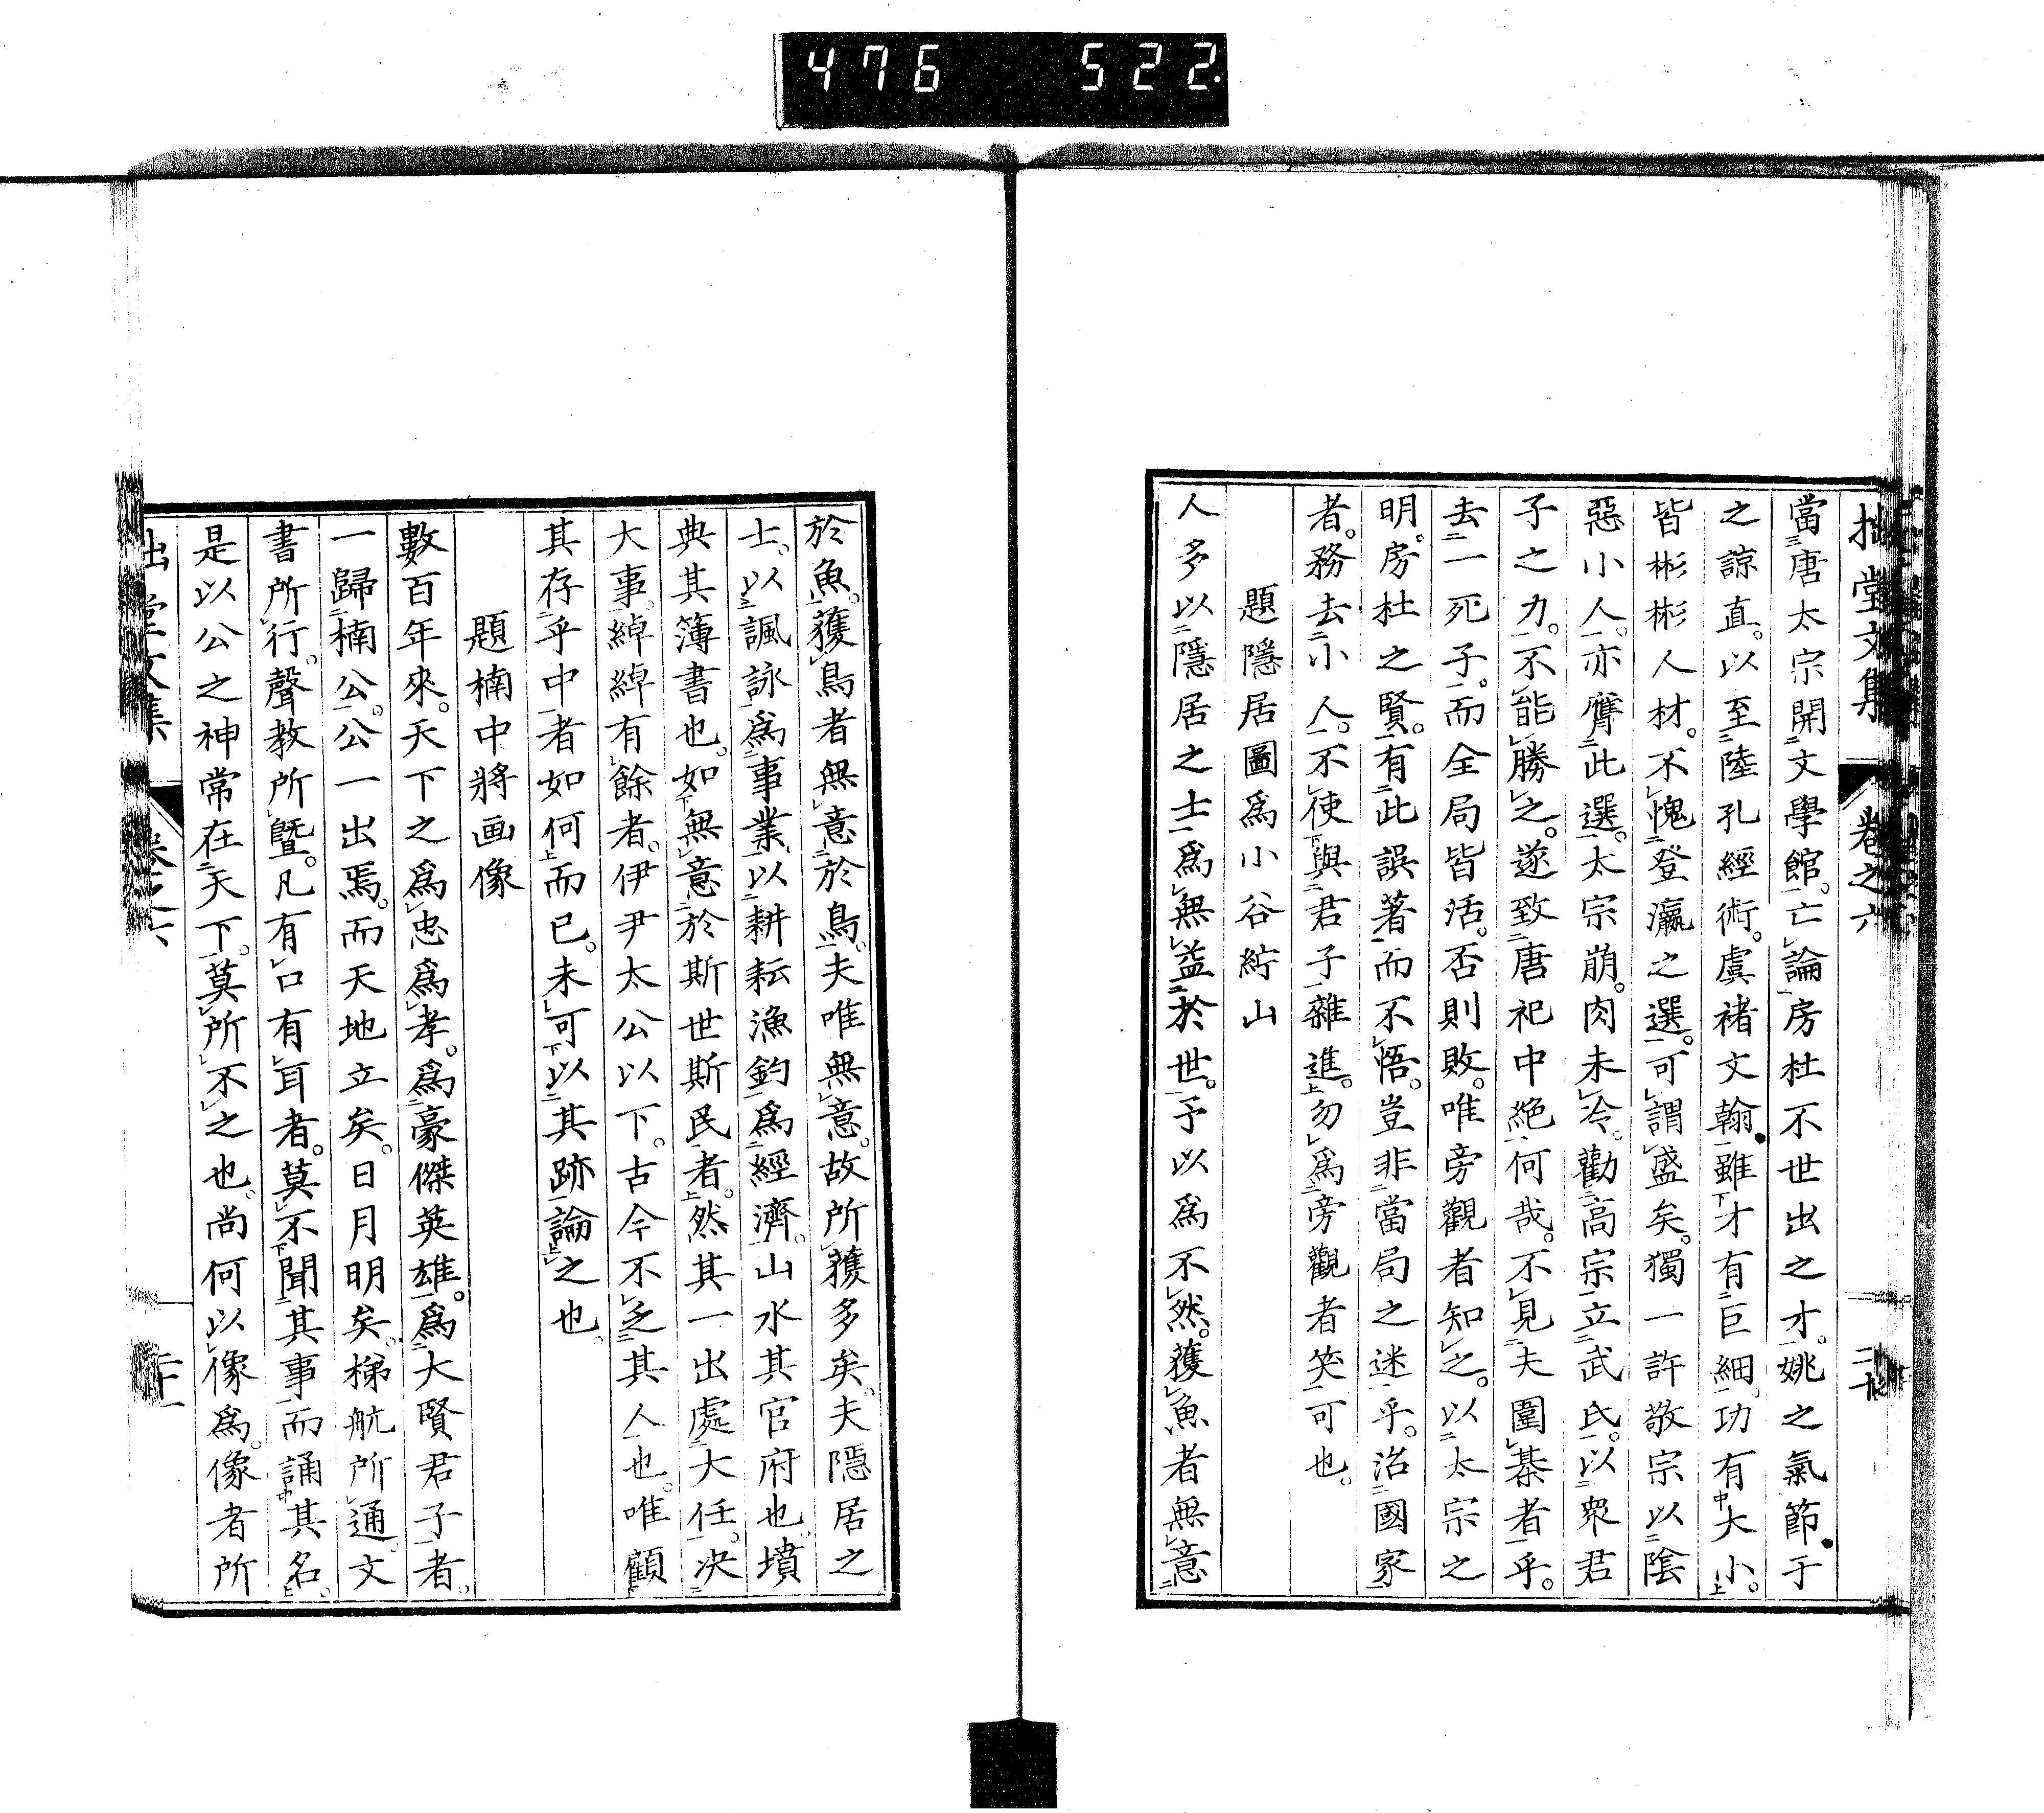 476 522
拙堂文集 卷之六 二十
當唐太宗開文學館。亡論房杜不世出之才。姚之氣節。于
之諒直。以至陸孔經術。虞褚文翰。雖才有巨細。功有大小。
皆彬彬人材。不愧登瀛之選。可謂盛矣。獨一許敬宗以陰
惡小人。亦膺此選。太宗崩。肉未冷。勸高宗立武氏。以衆君
子之力。不能勝之。遂致唐祀中絶。何哉。不見夫圍棊者乎。
去一死子。而全局皆活。否則敗。唯旁觀者知之。以太宗之
明。房杜之賢。有此誤著。而不悟。豈非當局之迷乎。治國家
者。務去小人。不使與君子雜進。勿爲旁觀者笑可也。
題隱居圖爲小谷紵山
人多以隱居之士。爲無益於世。予以爲不然。獲魚者無意
於魚。獲鳥者無意於鳥。夫唯無意。故所獲多矣。夫隱居之
士。以諷詠爲事業。以耕耘漁釣爲經濟。山水其官府也。墳
典其簿書也。如無意於斯世斯民者。然其一出處大任。决
大事。綽綽有餘者。伊尹太公以下。古今不乏其人也。唯顧
其存乎中者如何而已。未可以其跡論之也。
題楠中將画像
數百年來。天下之爲忠爲孝。爲豪傑英雄。爲大賢君子者。
一歸楠公。公一出焉。而天地立矣。日月明矣。梯航所通。文
書所行。聲教所曁。凡有口有耳者。莫不聞其事而誦其名。
是以公之神常在天下。莫所不之也。尚何以像爲。像者所
堂文集 卷之六